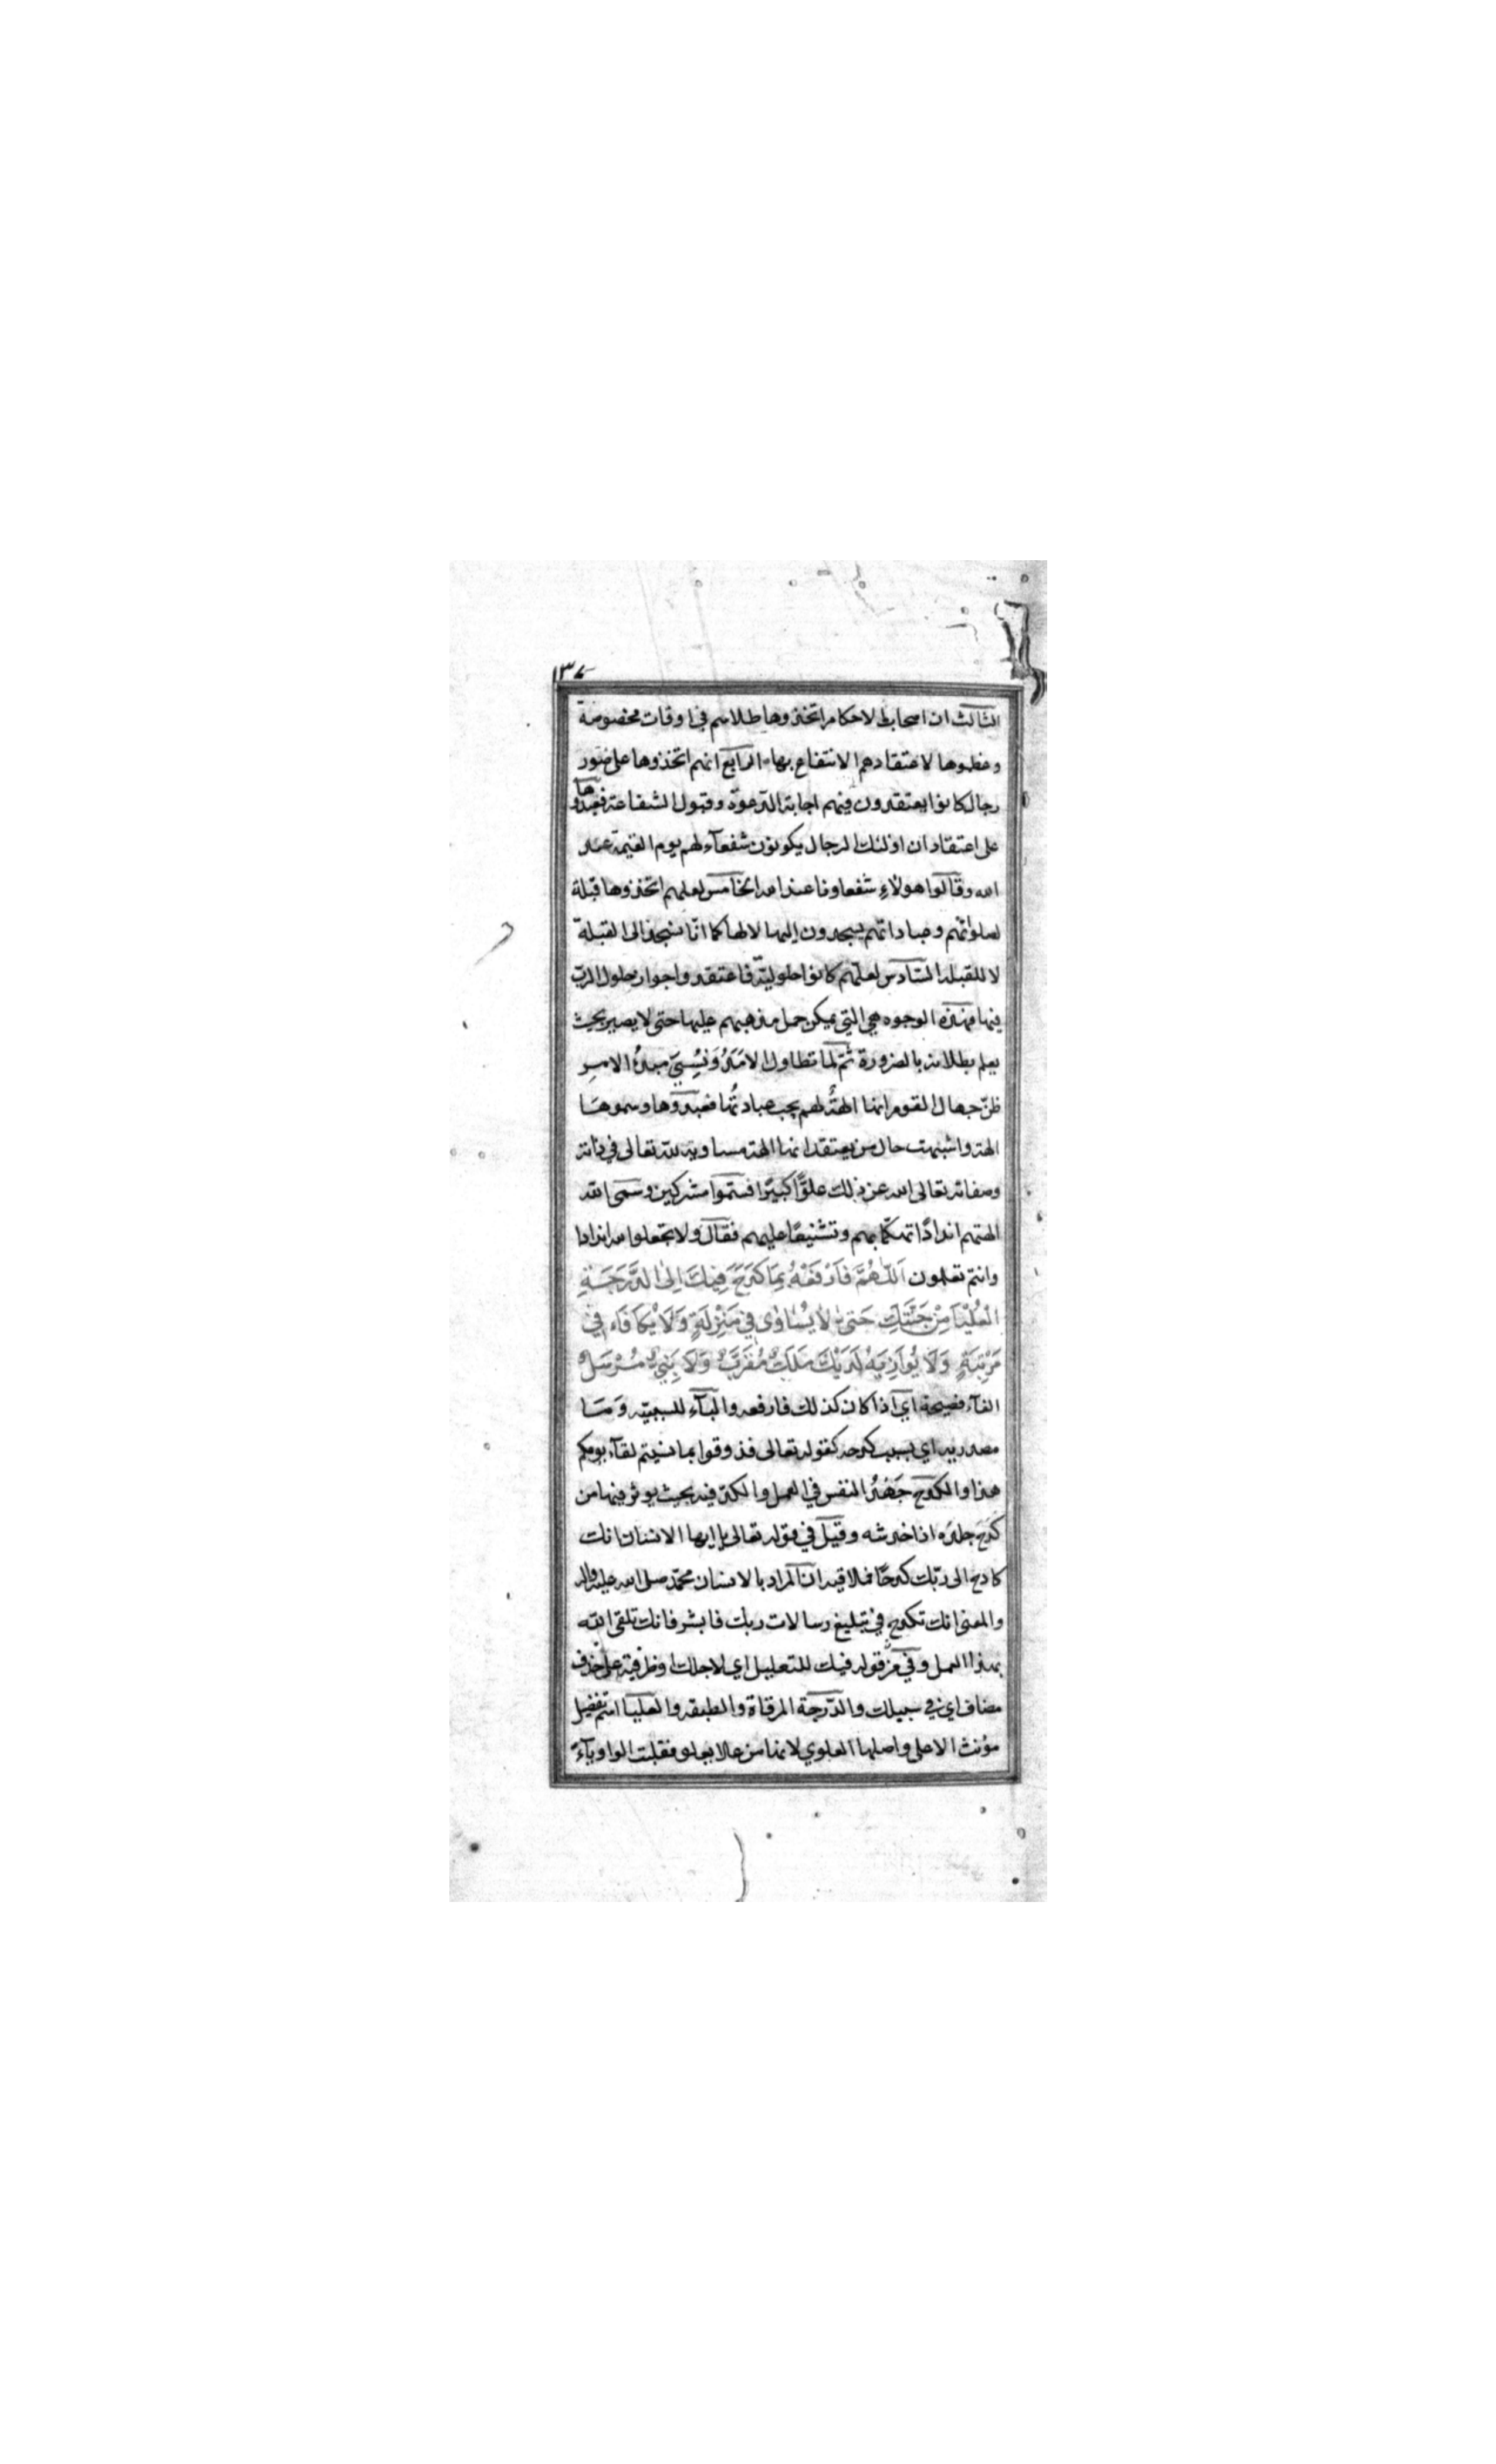 ١٣٧
الثالث ان اصحاب الاحكام اتخذوها طلاسم في اوقات مخصوصة
وعظموها لاعتقادهم الانتفاع بها الرابع انهم اتخذوها على صور
رجال كانوا يعتقدون فيهم اجابة الدعوة وقبول الشفاعة فعبدوها
على اعتقاد ان اولئك الرجال يكونون شفعآء لهم يوم القيمة عند
الله وقالوا هولاء شفعاونا عند الله الخامس لعلهم اتخذوها قبلة
لصلوتهم وعباداتهم يسجدون اليها لا لها كما انا نسجد الى القبلة
لا للقبلة السادس لعلهم كانوا حلولية فاعتقدوا جواز حلول الرب
فيها فهذه الوجوه هي التي يمكن حمل مذهبهم عليها حتى لا يصير بحيث
يعلم بطلانه بالضرورة ثم لما تطاول الامد ونسي مبدء الامر
ظن جهال القوم انها الهة لهم يجب عبادتها فعبدوها وسموها
الهة واشبهت حال من يعتقد انها الهة مساوية لله تعالى في ذاته
وصفاته تعالى الله عن ذلك علوا كبيرا فسموا مشركين وسمى الله
الهتهم اندادا تهكما بهم وتشنيعا عليهم فقال ولا تجعلوا لله اندادا
وانتم تعلمون اَللّٰهُمَّ فَارْفَعْهُ بِمَا كَدَحَ فِيكَ اِلَى الدَّرَجَةِ
الْعُلْيَا مِنْ جَنَّتِكَ حَتّٰى لَا يُسَاوٰى فِي مَنْزِلَةٍ وَلَا يُكَافَاءَ فِي
مَرْتِبَةٍ وَلَا يُوَازِيَهُ لَدَيْكَ مَلَكٌ مُقَرَّبٌ وَلَا نَبِيٌّ مُرْسَلٌ
الفآء فصيحة اي اذا كان كذلك فارفعه والبآء للسببية وما
مصدرية اي بسبب كدحه كقوله تعالى فذوقوا بما نسيتم لقآء يومكم
هذا والكدح جهد النفس في العمل والكد فيه بحيث يوثر فيها من
كدح جلده اذا خدشه وقيل في قوله تعالى يا ايها الانسان انك
كادح الى ربك كدحا فملاقيه ان المراد بالانسان محمد صلى الله عليه واله
والمعنى انك تكدح في تبليغ رسالات ربك فابشر فانك تلقى الله
بهذا العمل وفي قوله فيك للتعليل اي لاجلك او ظرفية على حذف
مضاف اي في سبيلك والدرجة المرقاة والطبقة والعليا اسم تفضيل
مؤنث الاعلى واصلها العلوي لانها من علا يعلو فقلبت الواو يآء